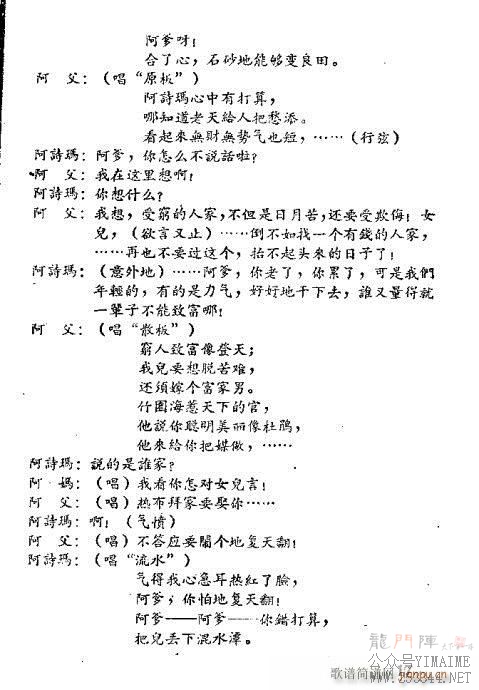 阿爹呀!
合了心，石砂地能够变良田。
阿 父：（唱“原板”）
阿詩瑪心中有打算，
哪知道老天給人把愁添。
看起來無財無势气也短，……（行弦）
阿詩瑪：阿爹，你怎么不說話啦?
阿 父：我在这里想啊!
阿詩瑪：你想什么?
阿 父：我想，受窮的人家，不但是日月苦，还要受欺侮! 女
兒，（欲言又止）……倒不如找一个有錢的人家，
……再也不要过这个，抬不起头来的日子了!
阿詩瑪：（意外地）……阿爹，你老了，你累了，可是我們
年輕的，有的是力气，好好地干下去，誰又量得就
一輩子不能致富哪!
阿 父：（唱“散板”）
窮人致富像登天；
我兒要想脱苦难，
还須嫁个富家男。
竹园海惹天下的官，
他說你聪明美丽像杜鵑，
他來給你把媒做，……
阿詩瑪：說的是誰家?
阿 媽：（唱）我看你怎对女兒言!
阿 父：（唱）热布拜家要娶你……
阿詩瑪：啊!（气憤）
阿 父：（唱）不答应要鬧个地复天翻!
阿詩瑪：（唱“流水”）
气得我心急耳热紅了臉，
阿爹，你怕地复天翻!
阿爹——阿爹——你錯打算，
把兒丢下混水潭。
龍門陣
公众号YIMAIME
歌谱简谱网